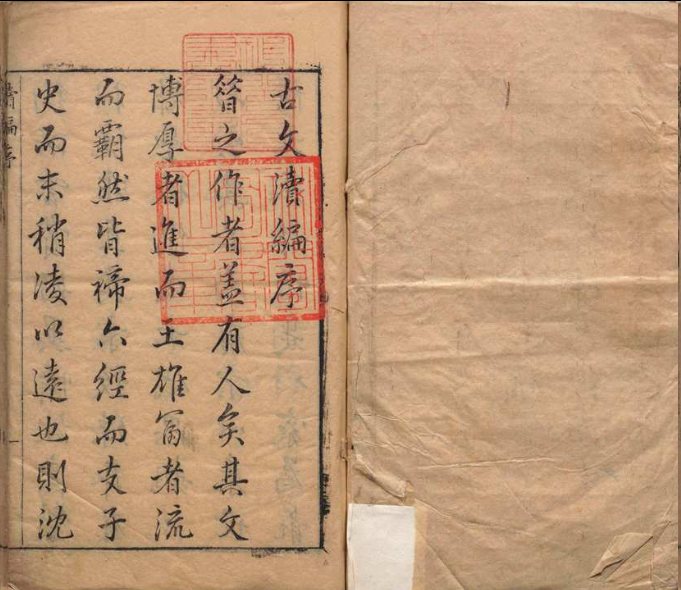 古文瀆編序
昝之作者蓋有人矣其文
博厚者進而王雄富者流
而霸然皆禘六經而支子
史而末稍凌以遠也則沈
瀆編序